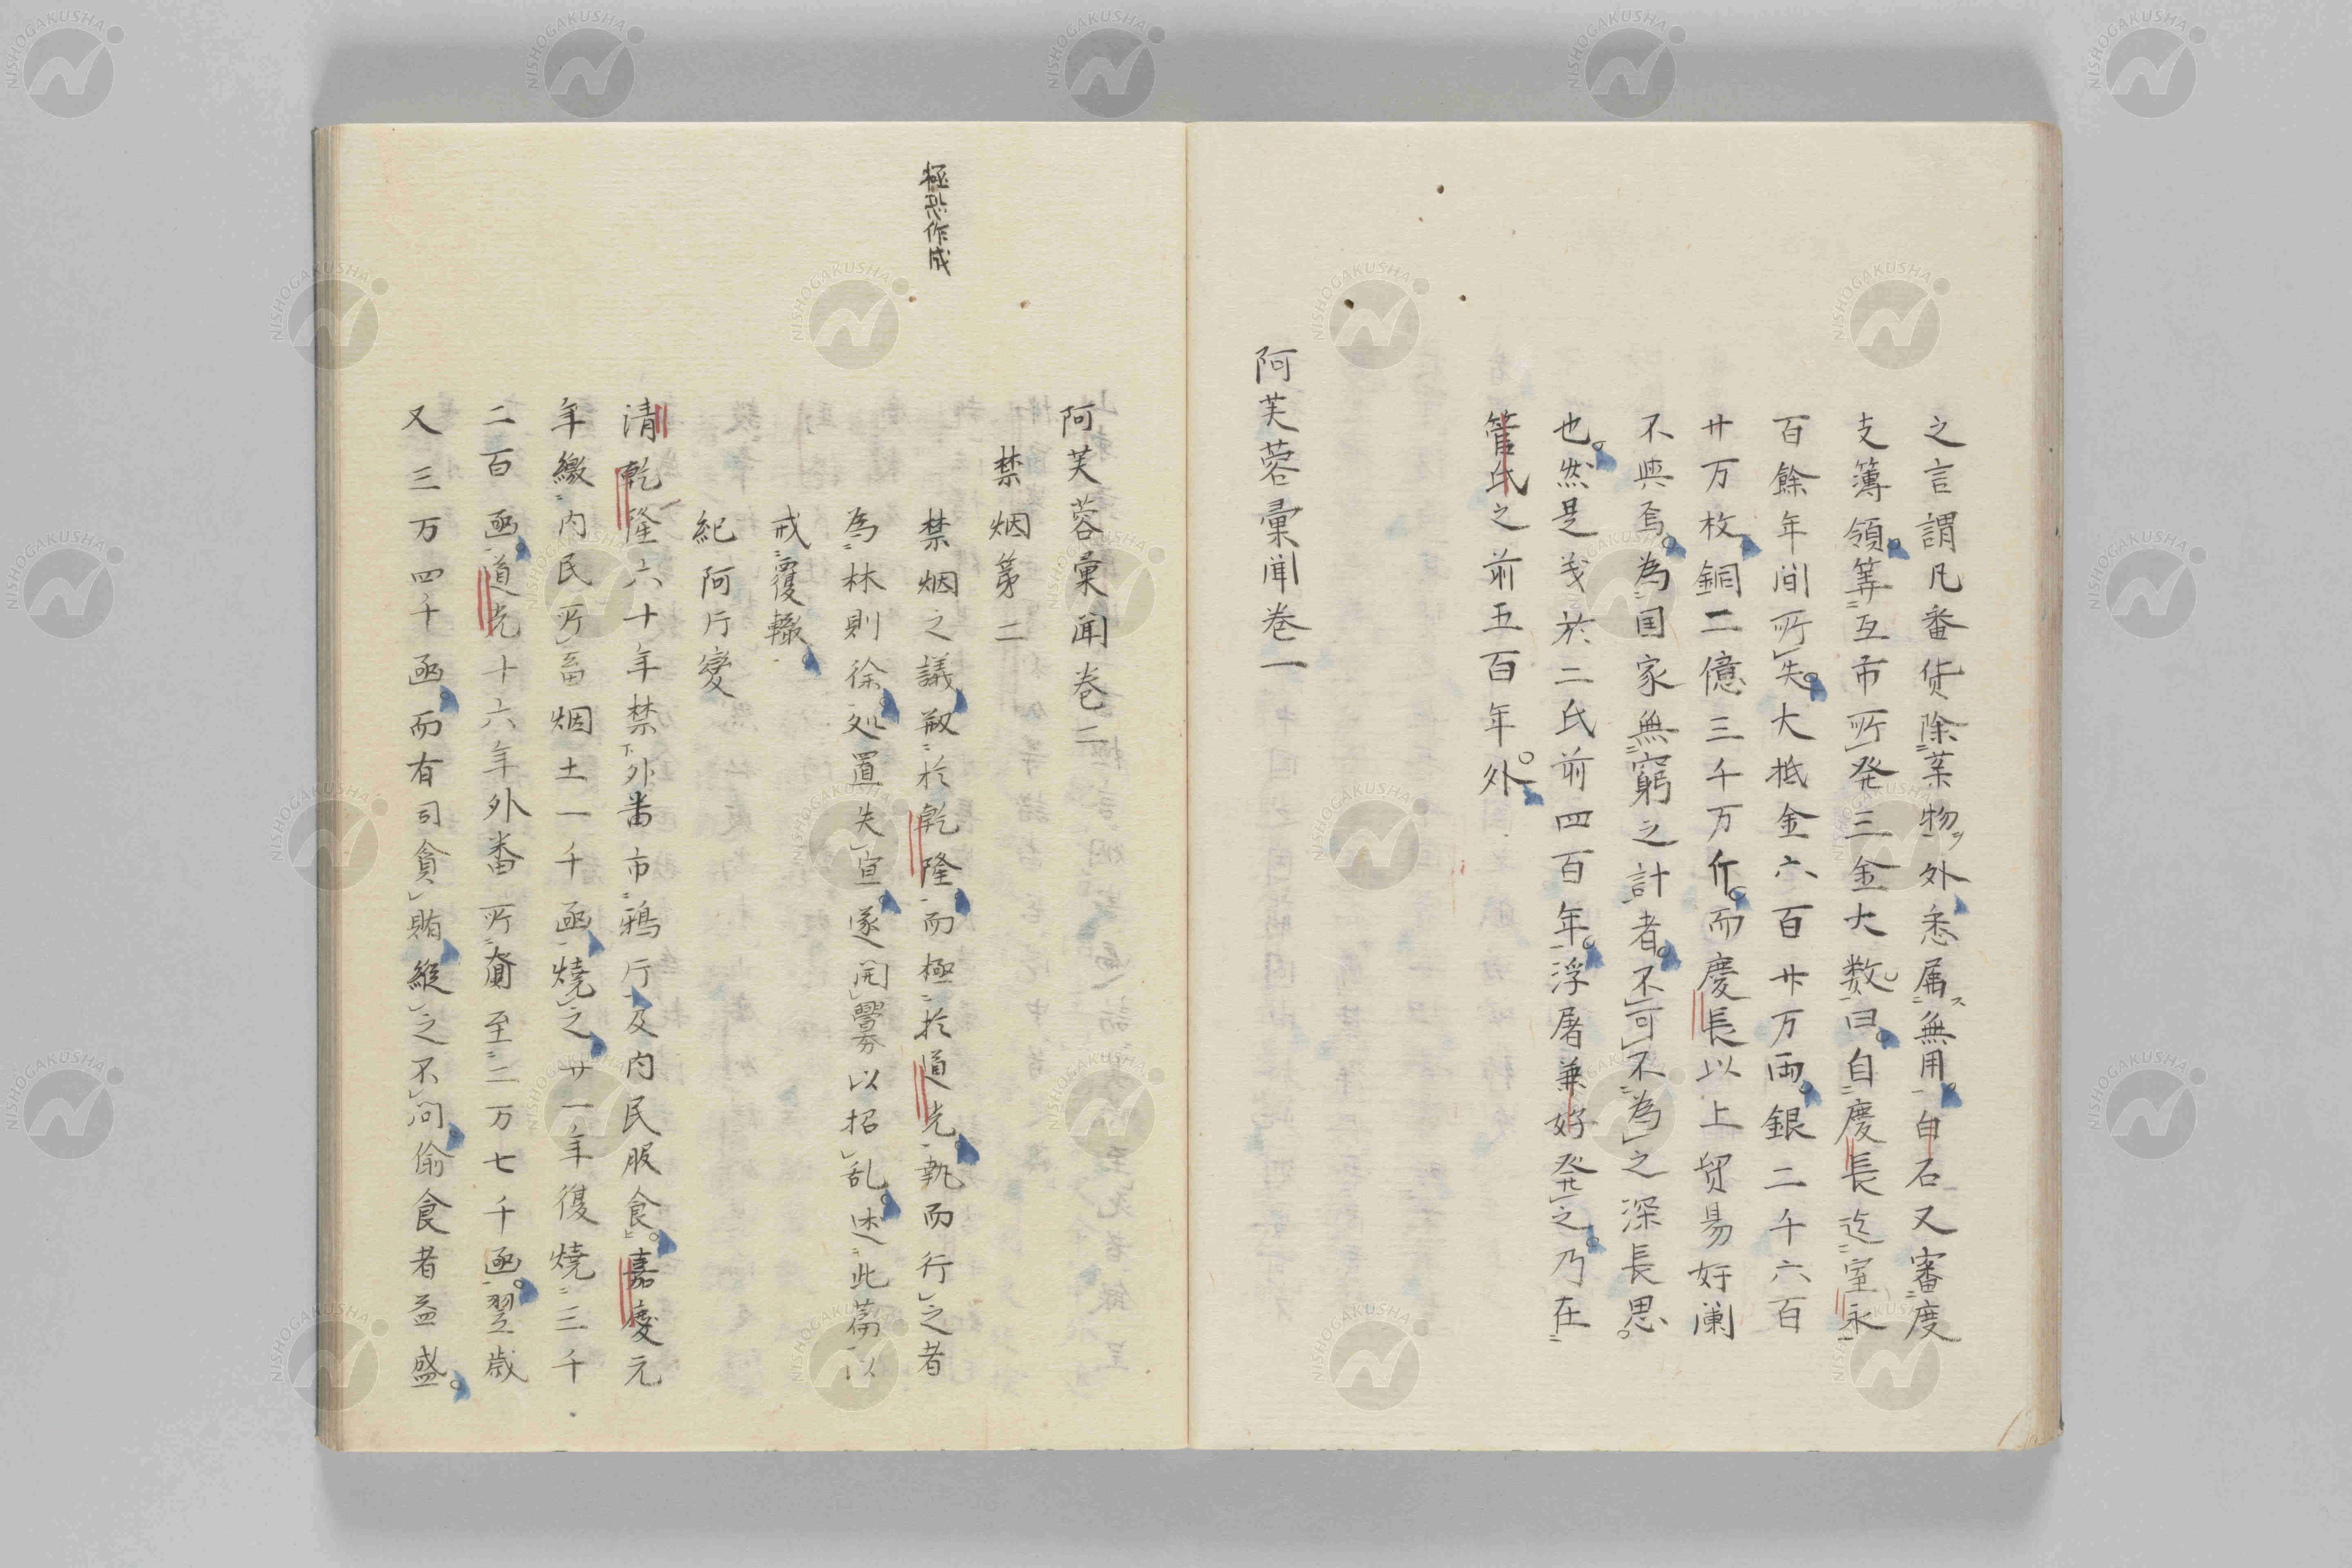 之言謂凡番貨除薬物外悉属無用白石又審度
支簿領筭互市所発三金大数曰自慶長迄宝永
百餘年間所失大抵金六百廿万両銀二千六百
廿万枚銅二億三千万斤而慶長以上貿易奸闌
不与焉為国家無窮之計者不可不為之深長思
也然是浅於二氏前四百年浮屠兼好発之乃在
管氏之前五百年外
阿芙蓉彙聞巻一
阿芙蓉彙聞巻二
禁烟第二
極恐作成
禁烟之議刱於乾隆而極於道光執而行之者
為林則徐処置失宜遂開釁以招乱述此篇以
戒覆轍
紀阿片変
清乾隆六十年禁外番市鴉片及内民服食嘉慶元
年繳内民所畜烟土一千函焼之廿一年復焼三千
二百函道光十六年外番所齎至二万七千函翌歳
又三万四千函而有司貪賄縦之不問偷食者益盛
NISHOGAKUSHA